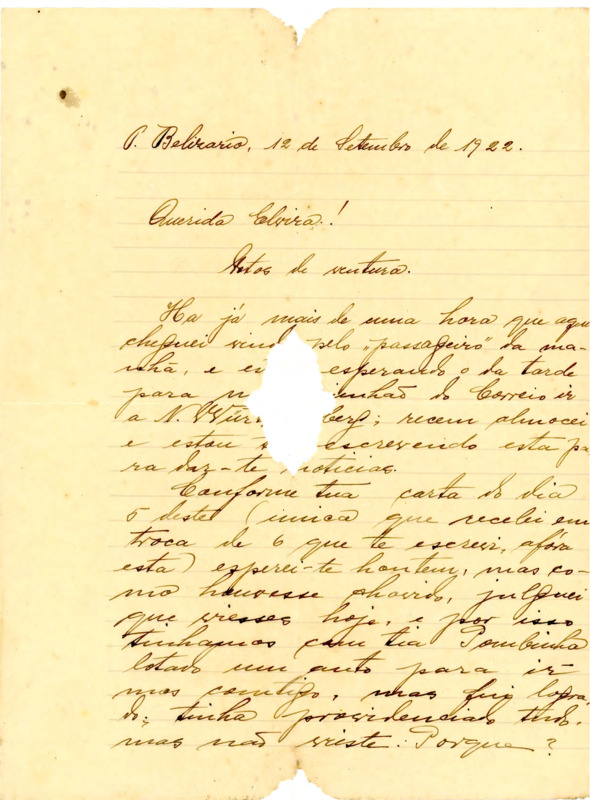 P. Belizario, 12 de Setembro de 1922.
Querida Elvira!
Votos de ventura.
Ha já mais de uma hora que aqui
cheguei pelo "passageiro" da ma-
nhã, e esperando o da tarde
para do Correio ir
a N. berg; recem almocei
e estou escrevendo esta pa
ra dar-te noticias.
Conforme tua carta do dia
5 deste (unica que recebi em
troca de 6 que te escrevi, afóra
esta) esperei-te hontem, mas co-
mo houvesse chovido, julguei
que viesses hoje, e por isso
tinhamos com tia Pombinha
lotado um auto para ir-
mos comtigo, mas fui logra-
do; tinha providenciado tudo,
mas não vieste. Porque?